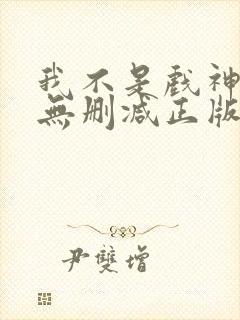 我不是戲神
無刪減正版
尹雙增